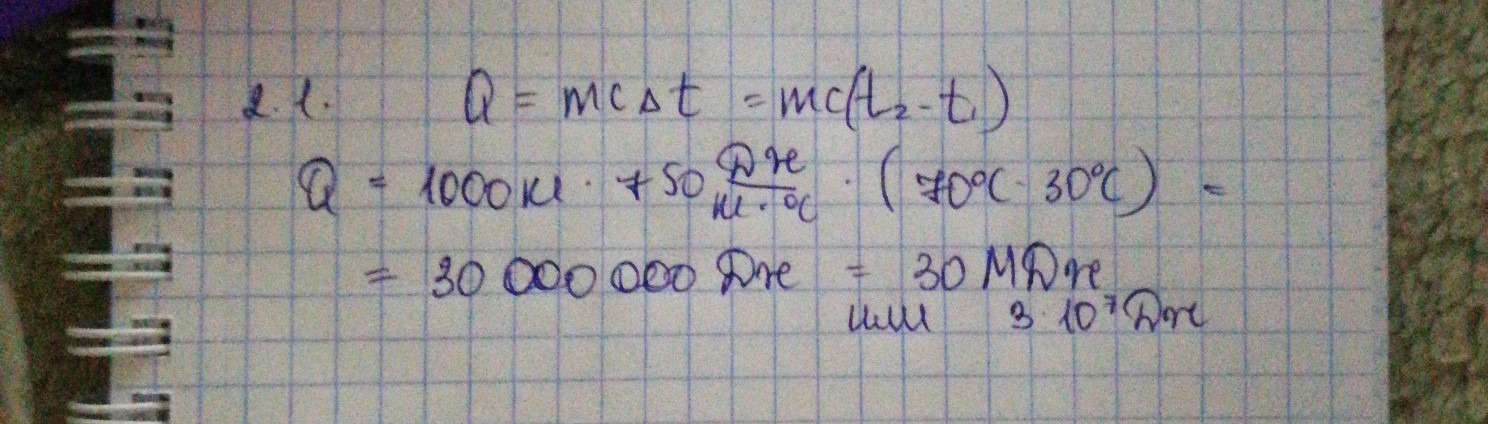 2.1. Q = mcΔt = mc(t₂ - t₁)
Q = 1000 кг · 750 Дж/кг·°C · (70°C - 30°C) =
= 30 000 000 Дж = 30 МДж
или 3·10⁷ Дж